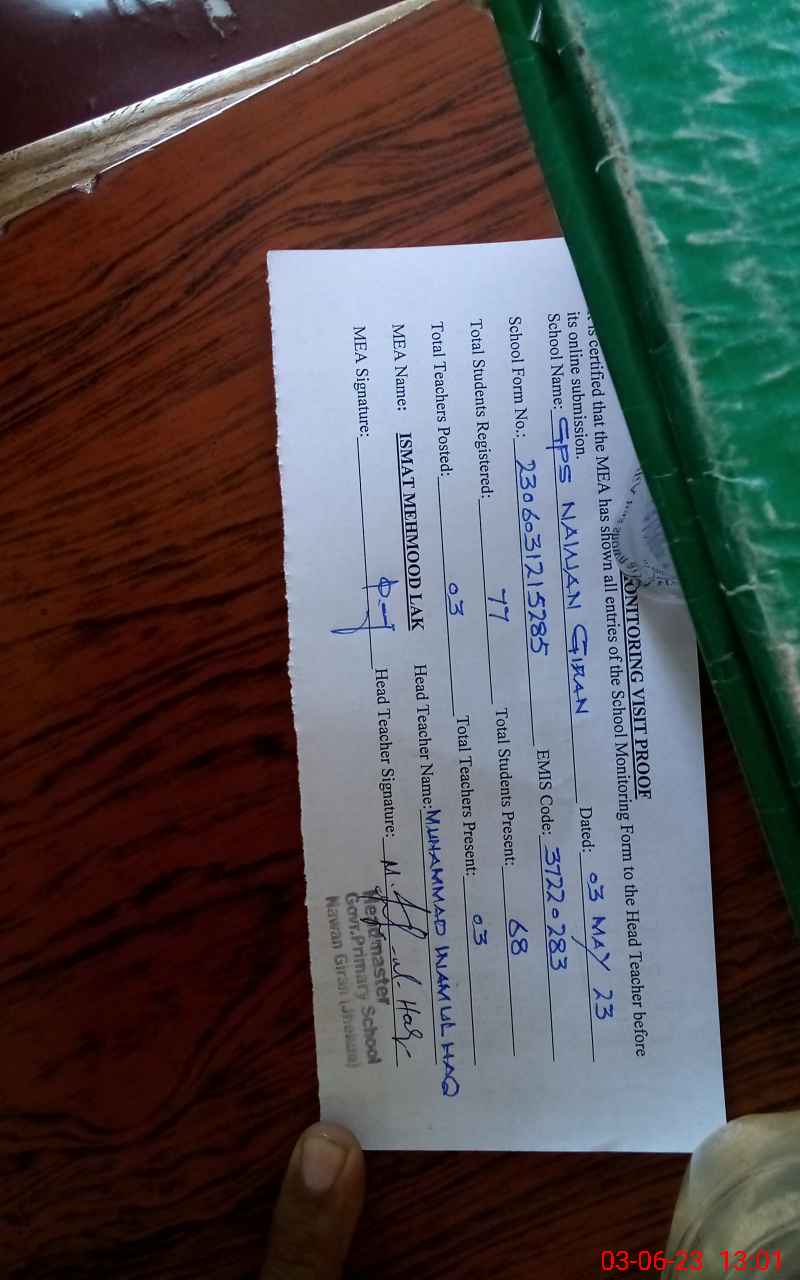 MONITORING VISIT PROOF
is certified that the MEA has shown all entries of the School Monitoring Form to the Head Teacher before
its online submission.
School Name: GPS NAWAN GIRAN Dated: 03 MAY 23
School Form No.: 2306031215285 EMIS Code: 37220283
Total Students Registered: 77 Total Students Present: 68
Total Teachers Posted: 03 Total Teachers Present: 03
MEA Name: ISMAT MEHMOOD LAK Head Teacher Name: MUHAMMAD INAM UL HAQ
MEA Signature: Head Teacher Signature: M. ul-Haq
Headmaster
Govt.Primary School
Nawan Giran
03-06-23 13:01